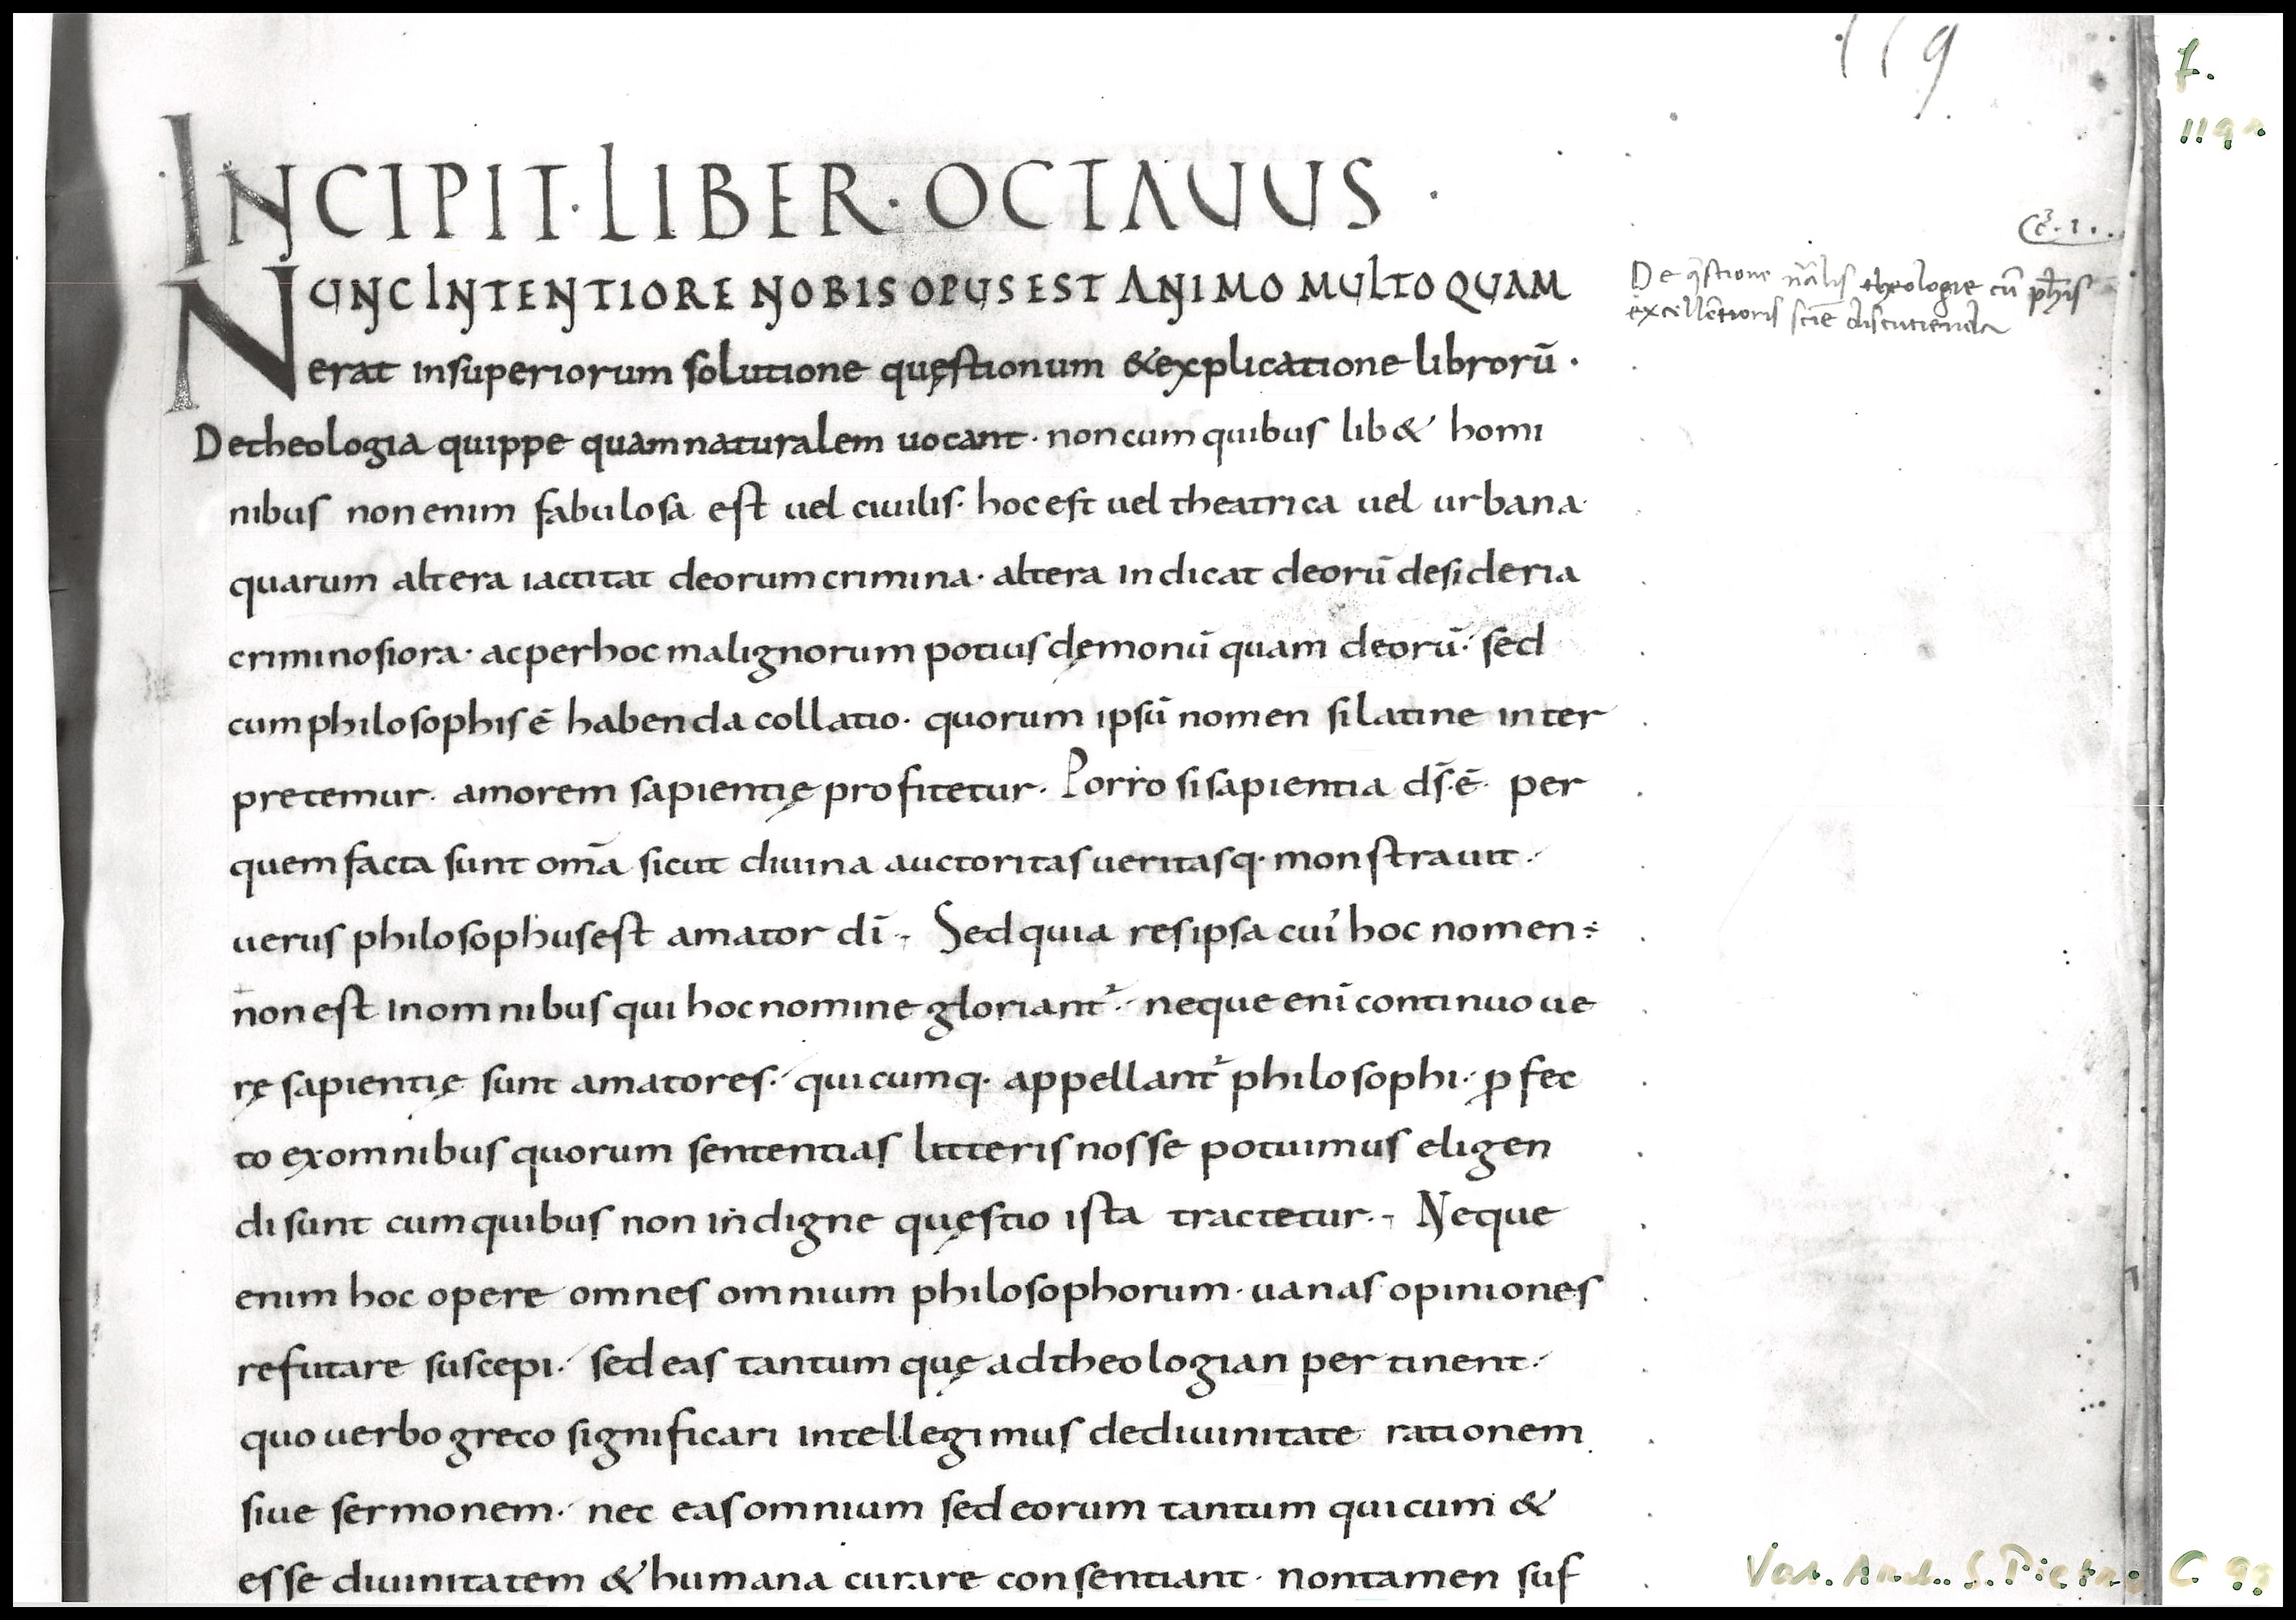 119
f.
119r
INCIPIT · LIBER · OCTAUUS ·
NUNC INTENTIORE NOBIS OPUS EST ANIMO MULTO QUAM
erat insuperiorum solutione quęstionum &explicatione librorū ·
Detheologia quippe quamnaturalem uocant · noncum quibus lib& homi
nibus non enim fabulosa est uel ciuilis · hoc est uel theatrica uel urbana ·
quarum altera iactitat deorum crimina · altera indicat deorū desideria
criminosiora · acperhoc malignorum potius dęmonū quam deorū · sed
cum philosophis ē habenda collatio · quorum ipsū nomen si latine inter
pretemur · amorem sapientię profitetur · Porro si sapientia ds̄ · ē · per
quem facta sunt om̄a sicut diuina auctoritas ueritasq · monstrauit ·
uerus philosophus est amator dī · Sed quia res ipsa cui hoc nomen ÷
non est inomnibus qui hoc nomine gloriant᷑ · neque enī continuo ue
rę sapientię sunt amatores · quicumq · appellant᷑ philosophi · ꝓfec
to exomnibus quorum sententias litteris nosse potuimus eligen
di sunt cum quibus non indigne quęstio ista tractetur · Neque
enim hoc opere omnes omnium philosophorum · uanas opiniones
refutare suscepi · sed eas tantum quę adtheologian pertinent ·
quo uerbo greco significari intellegimus dediuinitate rationem
siue sermonem · nec eas omnium sed eorum tantum qui cum &
esse diuinitatem & humana curare consentiant · nontamen suf
De q̄stione nālis theologie cū ph̄is
excellētioris sciē discutienda
Vat. Arch. S. Pietro C 99